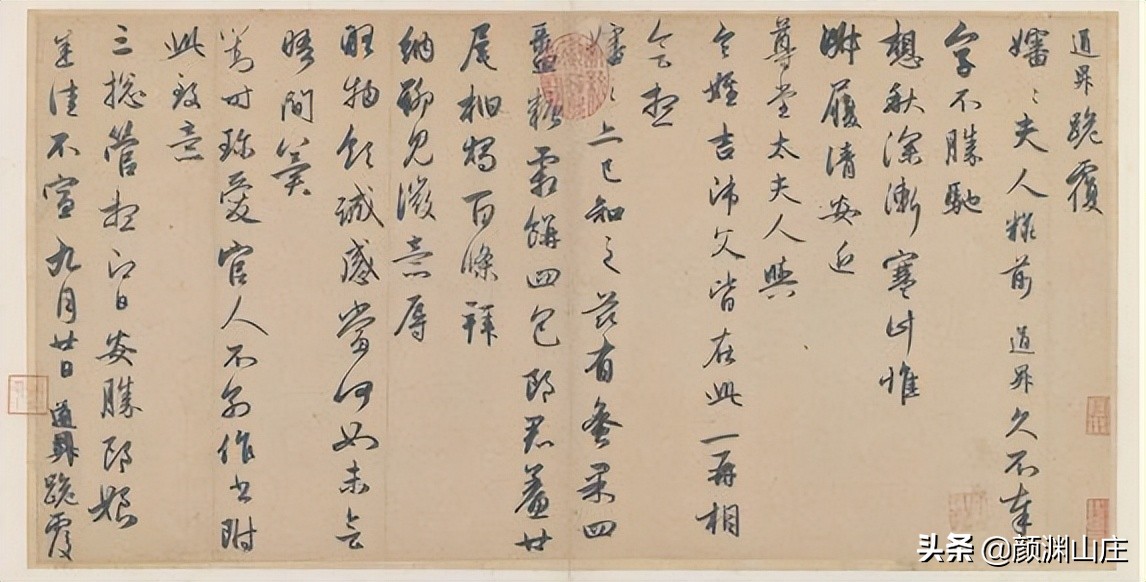 道昇跪覆
嬸〻夫人粧前 道昇久不奉
字不勝馳
想秋深漸寒計惟
淑履清安近
尊堂太夫人與
令姪吉師父皆在此一再相
會想
嬸〻上已知之茲有蜜菓四
盝糖霜餅四包郎君鯗廿
尾柏燭百條拜
納聊見微意辱
物領誠感當何如未會
晤間冀
時珍愛官人不別作書附
此致意
三總管想即日安勝郎娘
佳不宣 九月廿日 道昇跪覆
头条 @颜渊山庄